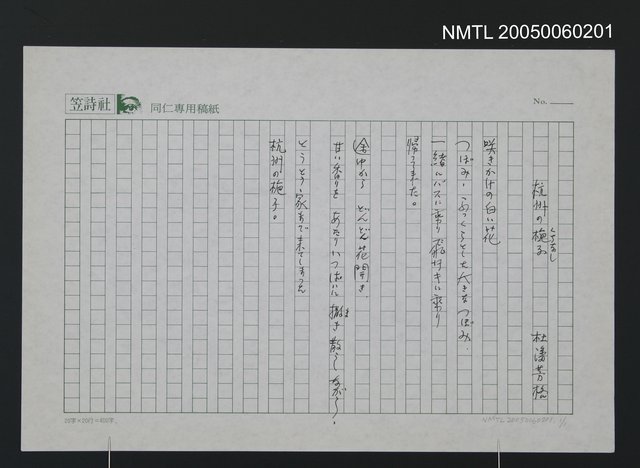 NMTL 20050060201
笠詩社 同仁専用稿紙
No.
杭州の梔子 くちなし
杜潘芳格
咲きかけの白い花
つぼみ、ふっくらとした大きなつぼみ、
一緒にバスに乗り 飛行キに乗り
帰って来た。
途中から どんどん花開き、
甘い香りを あたりいっぱいに 撒き散らしながら、
とうとう、家まで来てしまった
杭州の梔子。
20字×20行=400字
NMTL 20050060201 1/1